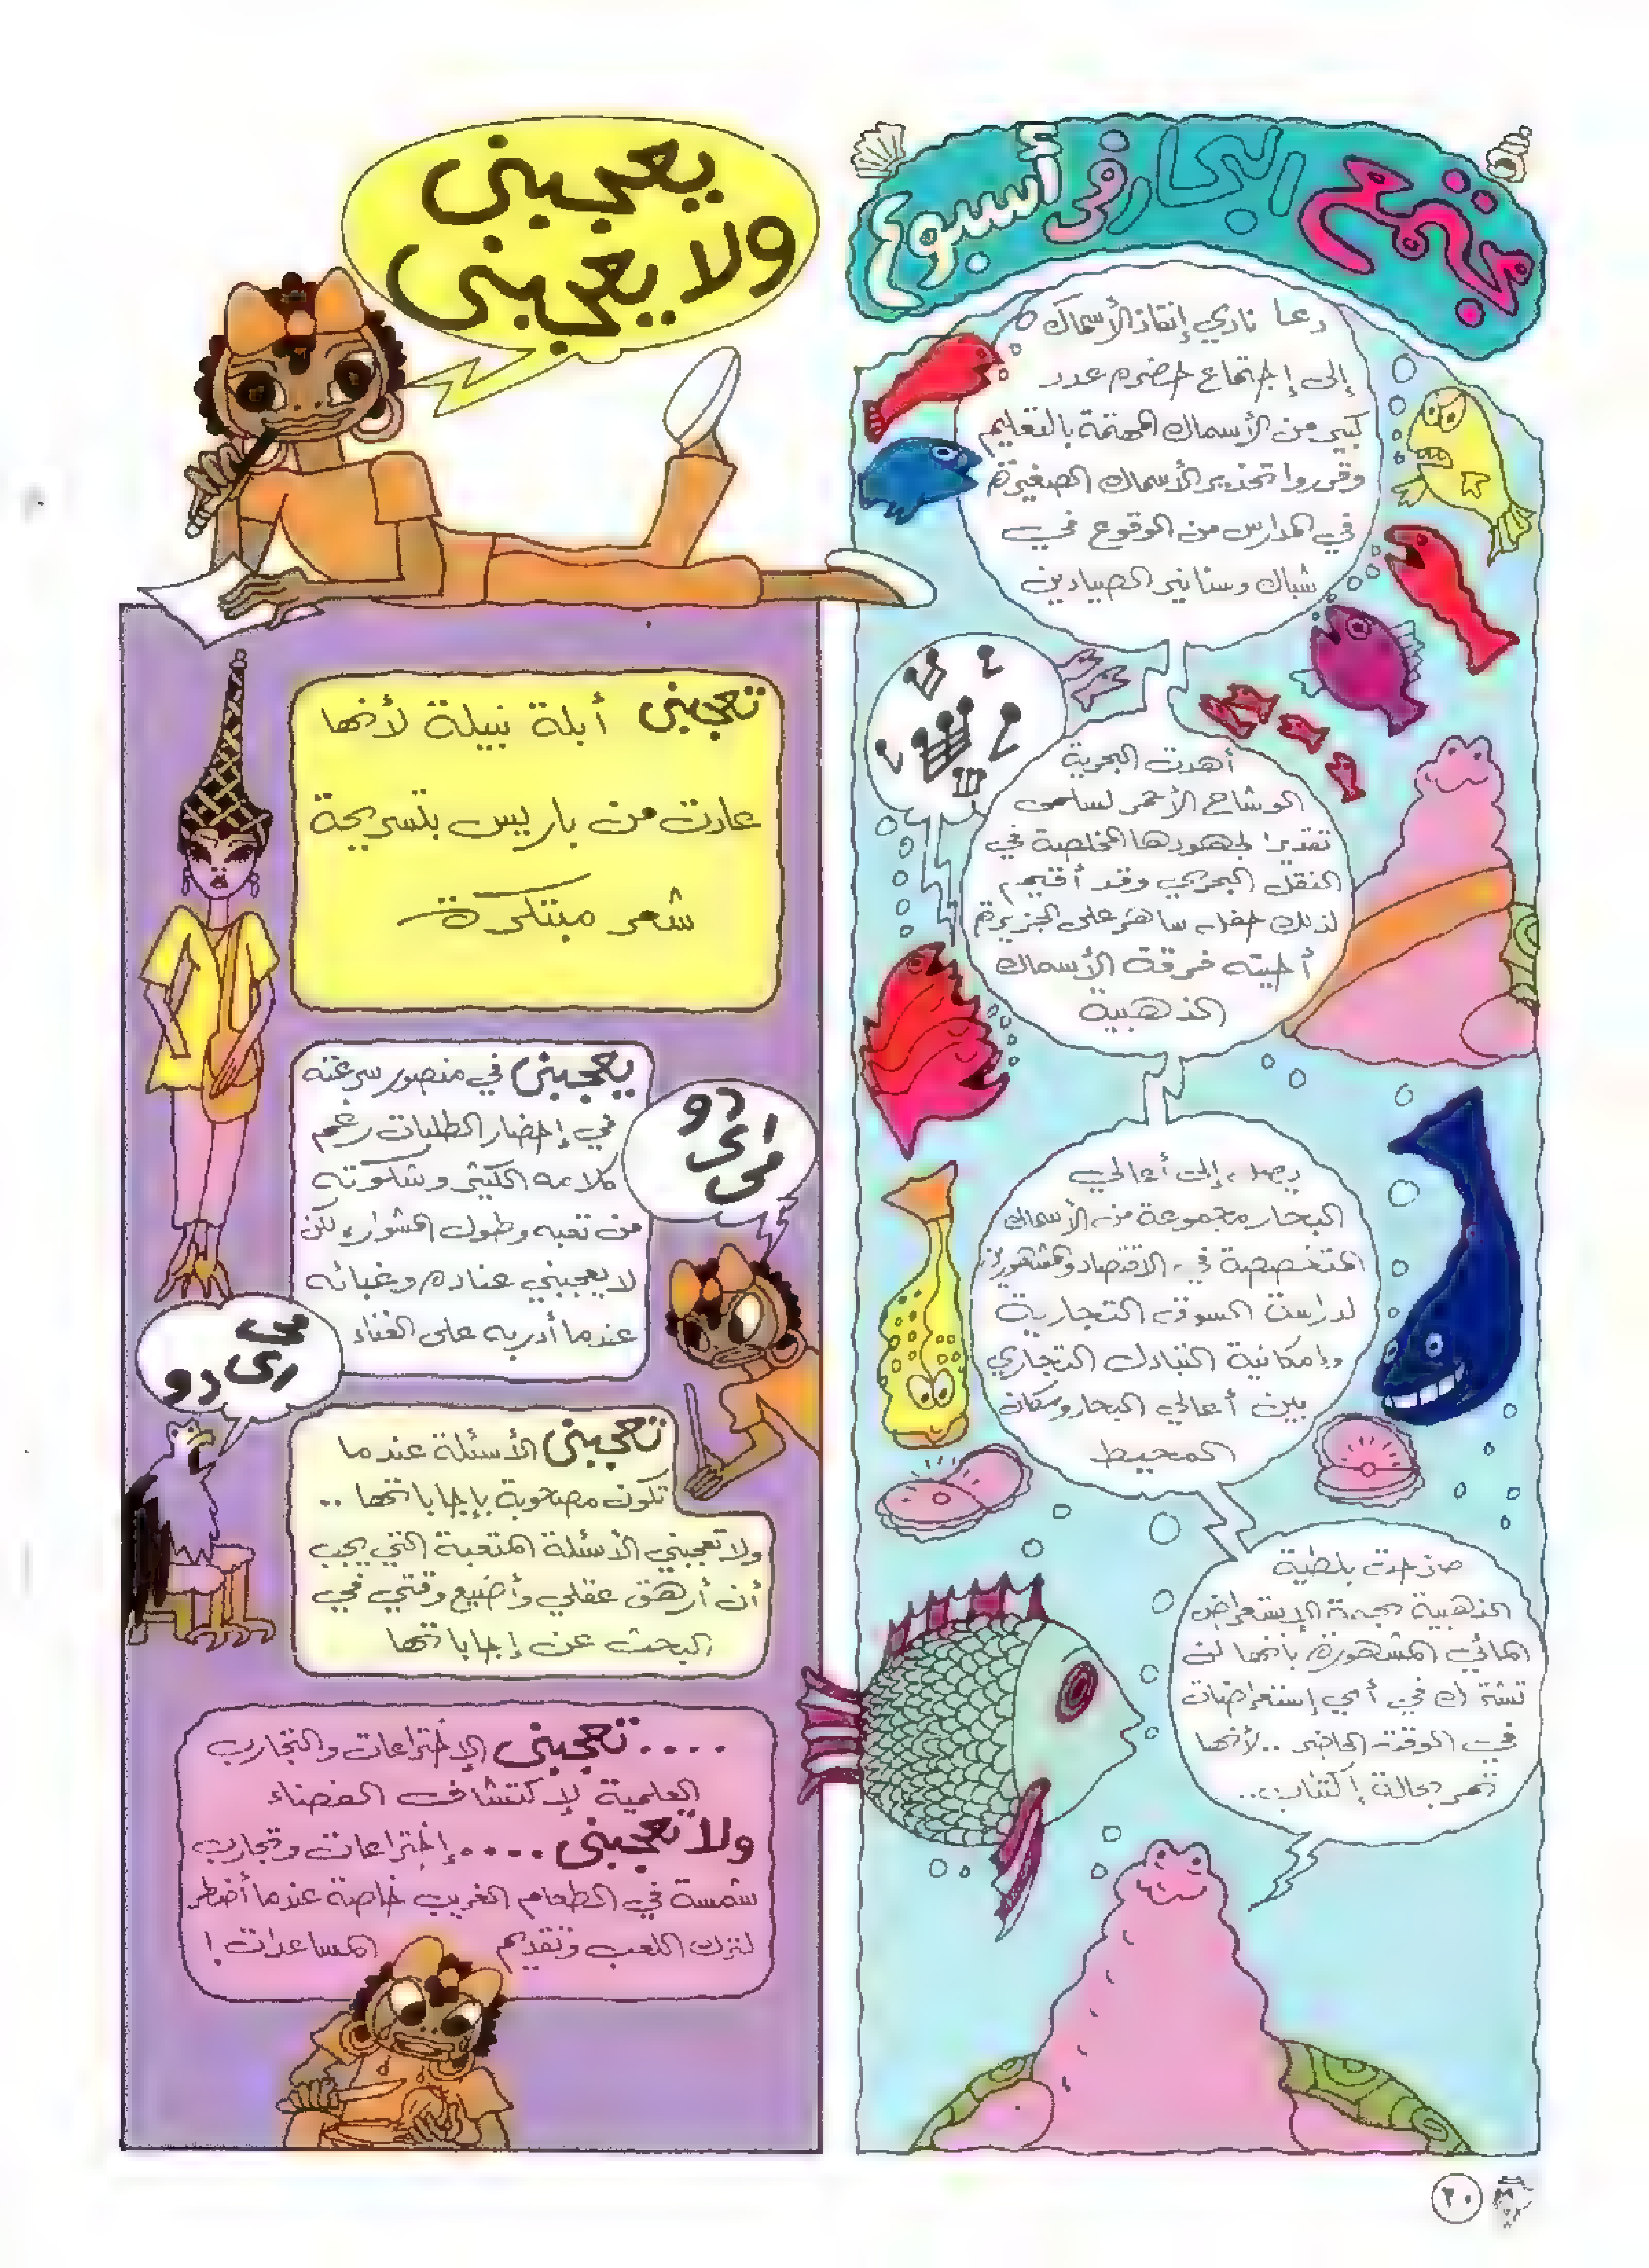 مجتمع البحار في أسبوع
دعا نادي إنقاذ الأسماك
إلى إجتماع حضره عدد
كبير من الأسماك المهتمة بالتعليم
وقرروا تحذير الأسماك الصغيرة
في المدارس من الوقوع في
شباك وسنانير الصيادين
أهدت البحرية
الوشاح الأحمر لسلمى
تقديرا لجهودها المخلصة في
النقل البحري وقد أقيم
لذلك حفل ساهر على الجزيرة
أحيته فرقة الأسماك
الذهبية
يصل إلى أعالي
البحار مجموعة من الأسماك
المتخصصة في الاقتصاد والمشهورين
لدراسة السوق التجارية
وإمكانية التبادل التجاري
بين أعالي البحار وسكان
المحيط
صرحت بلطية
الذهبية نجمة الإستعراض
المائي المشهورة بأنها لن
تشترك في أي إستعراضات
في الوقت الحاضر .. لأنها
تمر بحالة إكتئاب ..
يعجبنى
ولا يعجبنى
تعجبنى أبلة نبيلة لأنها
عادت من باريس بتسريحة
شعر مبتكرة
يعجبنى في منصور سرعته
في إحضار الطلبات رغم
كلامه الكثير وشكوته
من تعبه وطول المشوار، لكن
لا يعجبني عناده وغبائه
عندما أدربه على الغناء
دو
رى
مى
مى
رى دو
تعجبنى الأسئلة عندما
تكون مصحوبة بإجاباتها ..
ولا تعجبني الأسئلة المتعبة التي يجب
أن أرهق عقلي وأضيع وقتي في
البحث عن إجاباتها
.... تعجبنى الإختراعات والتجارب
العلمية لإكتشاف الفضاء
ولا تعجبنى .... إختراعات وتجارب
شمسة في الطعام الغريب خاصة عندما أضطر
لترك اللعب وتقديم المساعدات !
٢٠